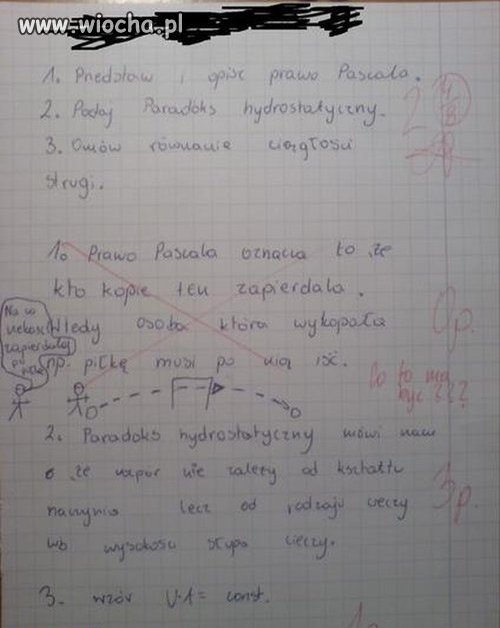 www.wiocha.pl
1. Przedstaw i opisz prawo Pascala.
2. Podaj Paradoks hydrostatyczny.
3. Omów równanie ciągłości
strugi.
2
4
8
1. Prawo Pascala oznacza to że
kto kopie ten zapierdala.
Wtedy osoba która wykopała
np. piłkę musi po nią iść.
Na co
czekasz
zapierdalaj
po nią
0p.
Co to ma
być!?
2. Paradoks hydrostatyczny mówi nam
o że napór nie zależy od kształtu
naczynia lecz od rodzaju cieczy
i wysokości słupa cieczy.
3p.
3. wzór V·A = const.